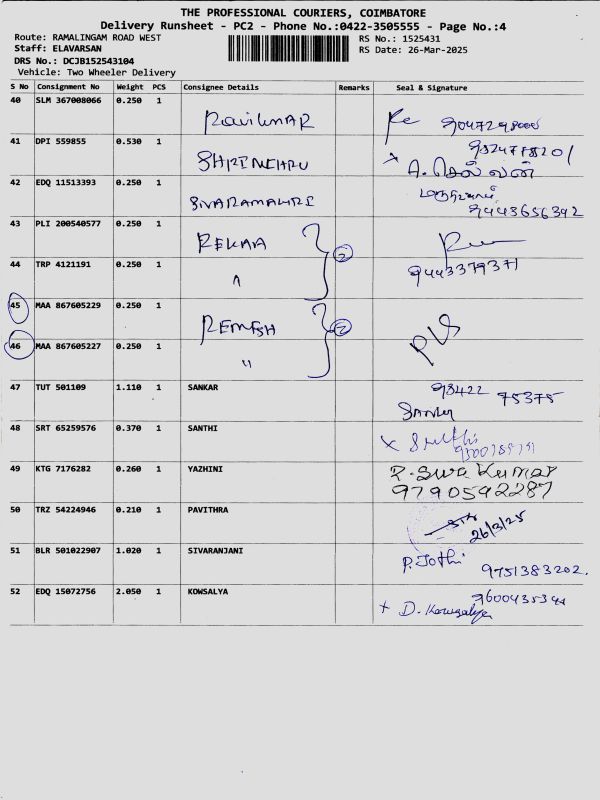 THE PROFESSIONAL COURIERS, COIMBATORE
Delivery Runsheet - PC2 - Phone No.:0422-3505555 - Page No.:4
Route: RAMALINGAM ROAD WEST RS No.: 1525431
Staff: ELAVARSAN RS Date: 26-Mar-2025
DRS No.: DCJB152543104
Vehicle: Two Wheeler Delivery
S No Consignment No Weight PCS Consignee Details Remarks Seal & Signature
40 SLM 367008066 0.250 1
41 DPI 559855 0.530 1
42 EDQ 11513393 0.250 1
43 PLI 200540577 0.250 1 REKAA 2
9443379371
44 TRP 4121191 0.250 1 "
45 MAA 867605229 0.250 1 REMESH 2
46 MAA 867605227 0.250 1 "
47 TUT 501109 1.110 1 SANKAR 98422 75375
48 SRT 65259576 0.370 1 SANTHI
49 KTG 7176282 0.260 1 YAZHINI P. Siva Kumar
9790592287
50 TRZ 54224946 0.210 1 PAVITHRA 26/3/25
51 BLR 501022907 1.020 1 SIVARANJANI P. Jothi 9751383202.
52 EDQ 15072756 2.050 1 KOWSALYA
x D. Kowsalya